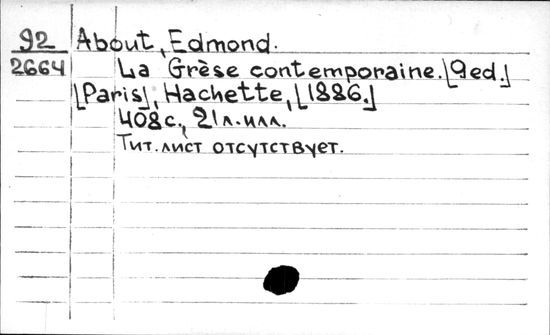 92 About, Edmond.
2664 La Grèse contemporaine. [9ed.]
[Paris], Hachette, [1886.]
408с., 21л.илл.
Тит. лист отсутствует.